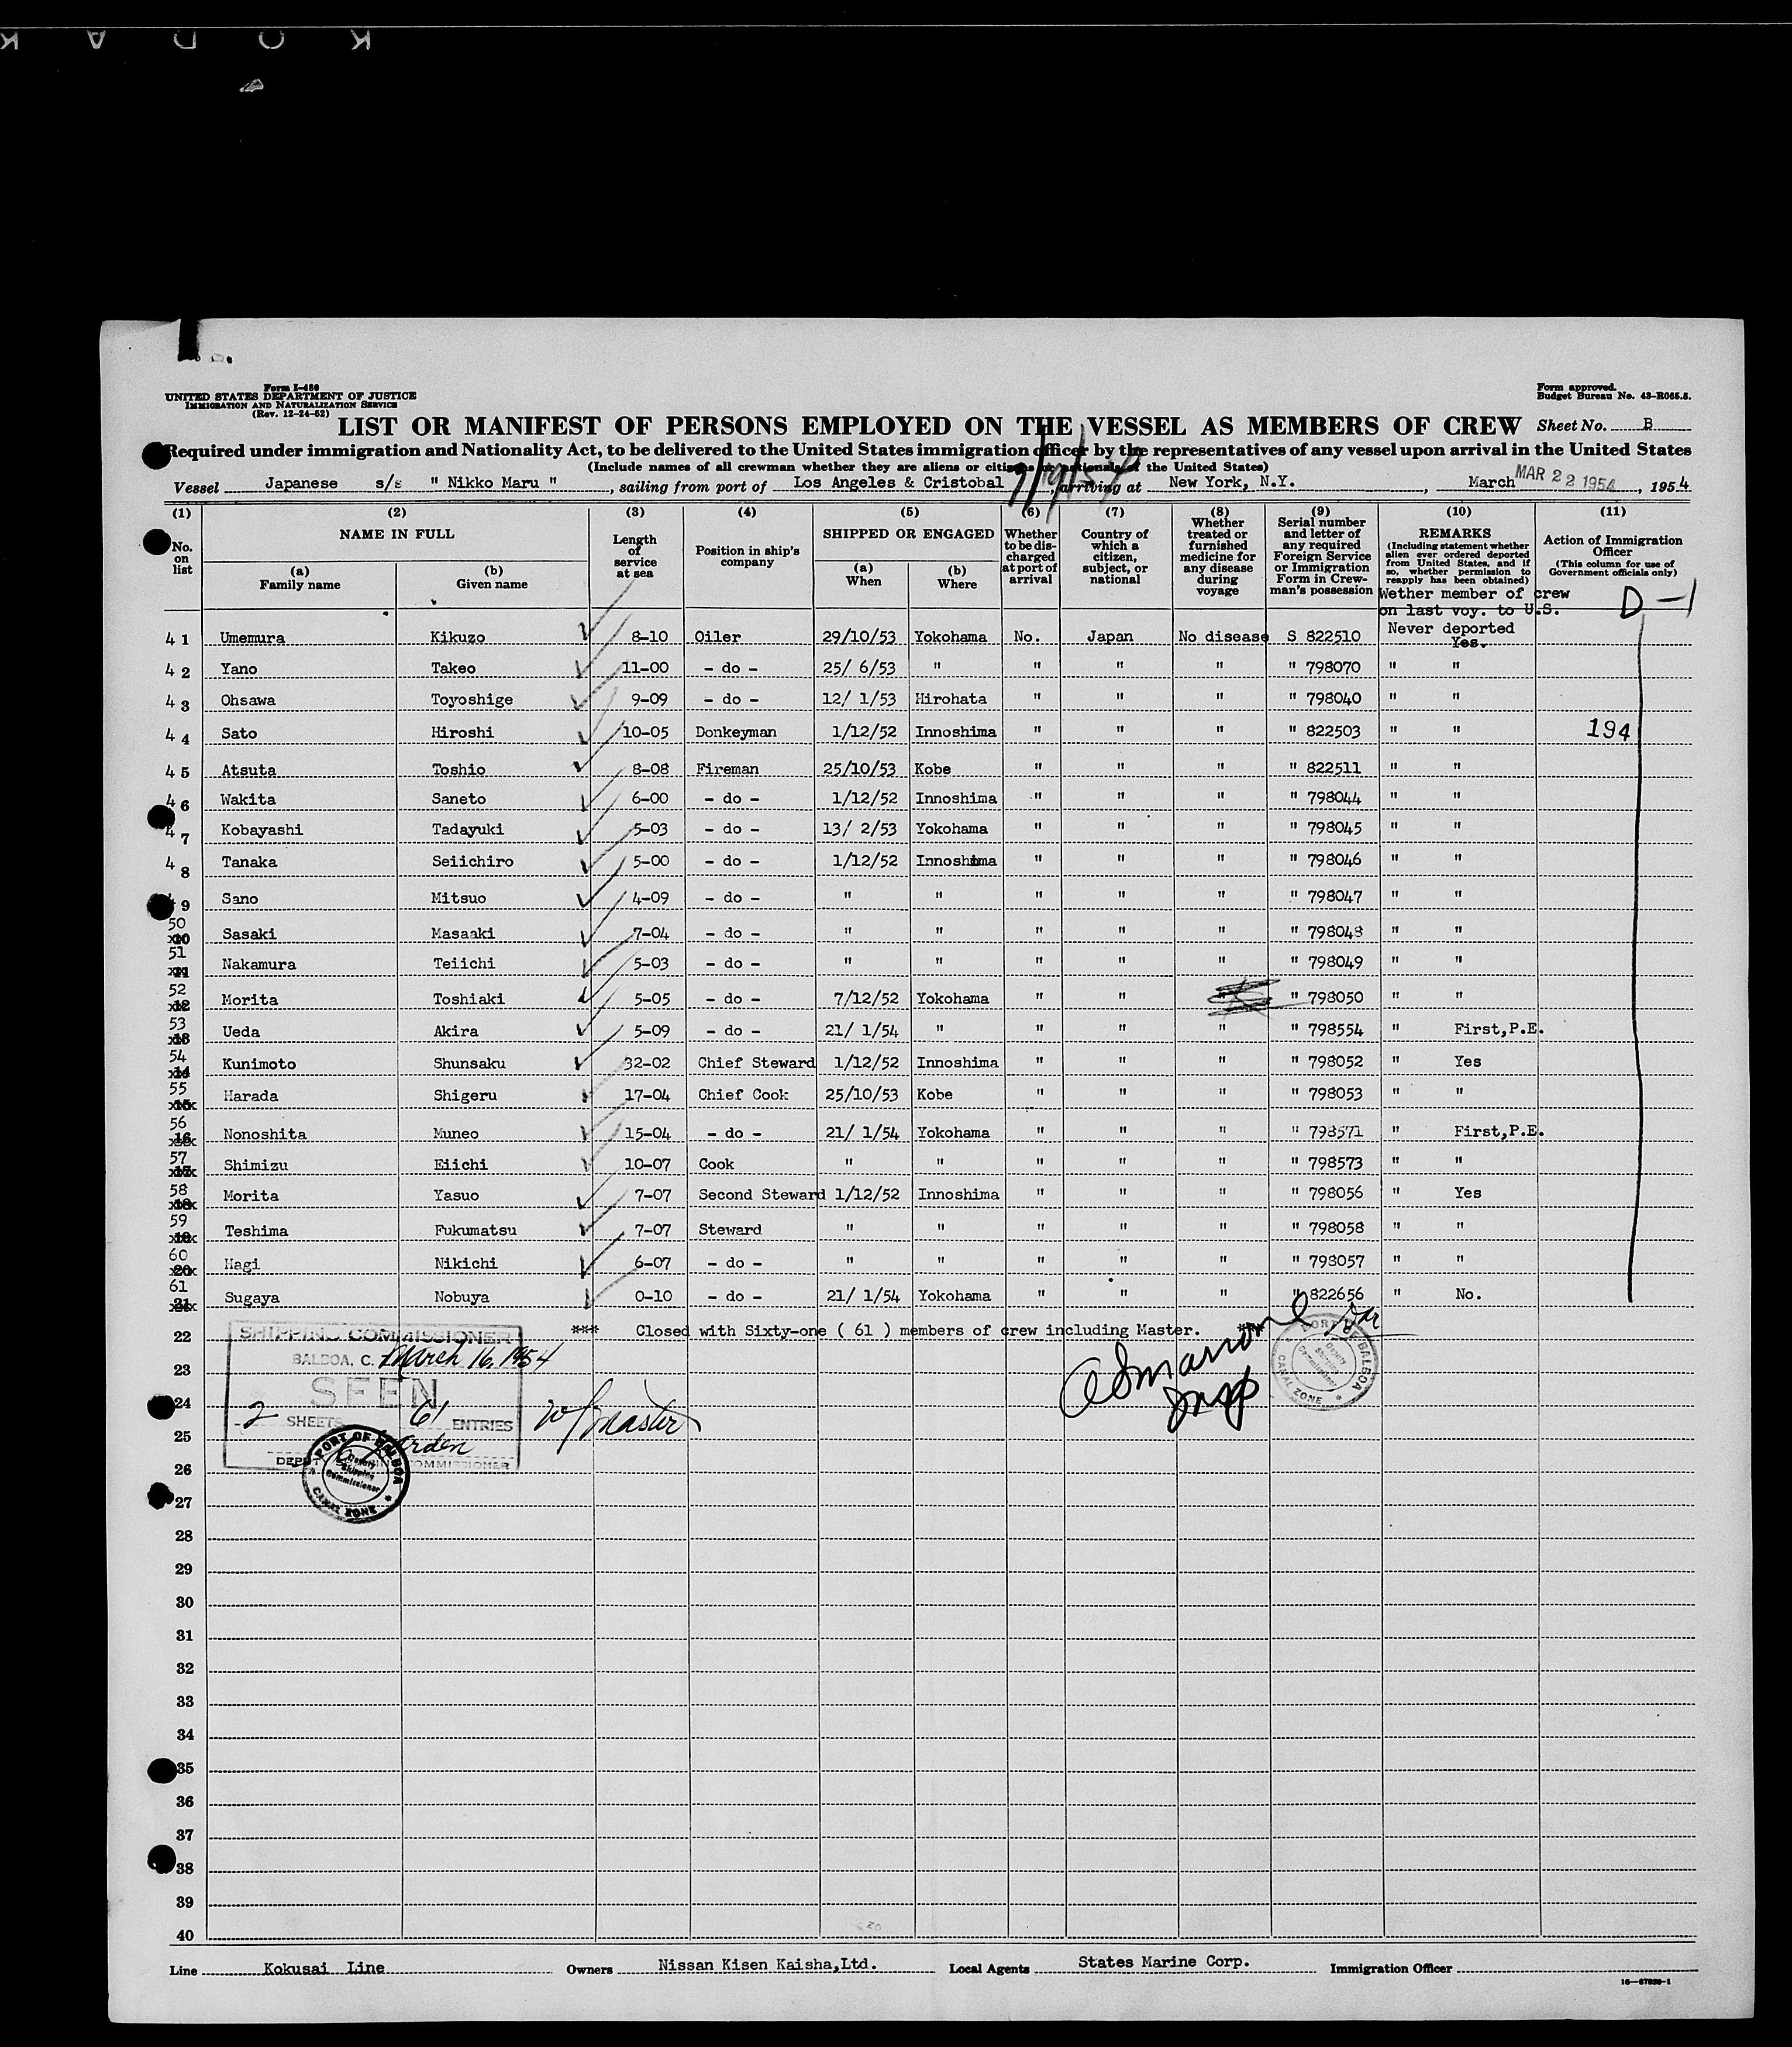 KODAK
Form I-480
UNITED STATES DEPARTMENT OF JUSTICE
IMMIGRATION AND NATURALIZATION SERVICE
(Rev. 12-24-52)
Form approved.
Budget Bureau No. 43-R065.5.
LIST OR MANIFEST OF PERSONS EMPLOYED ON THE VESSEL AS MEMBERS OF CREW Sheet No. B
Required under immigration and Nationality Act, to be delivered to the United States immigration officer by the representatives of any vessel upon arrival in the United States
(Include names of all crewman whether they are aliens or citizens or nationals of the United States)
Vessel Japanese s/s " Nikko Maru ", sailing from port of Los Angeles & Cristobal, arriving at New York, N.Y., March MAR 22 1954, 1954
(1) No. on list
(2) NAME IN FULL
(a) Family name
(b) Given name
(3) Length of service at sea
(4) Position in ship's company
(5) SHIPPED OR ENGAGED
(a) When
(b) Where
(6) Whether to be discharged at port of arrival
(7) Country of which a citizen, subject, or national
(8) Whether treated or furnished medicine for any disease during voyage
(9) Serial number and letter of any required Foreign Service or Immigration Form in Crewman's possession
(10) REMARKS (Including statement whether alien ever ordered deported from United States, and if so, whether permission to reapply has been obtained)
(11) Action of Immigration Officer (This column for use of Government officials only)
Wether member of crew on last voy. to U.S.
D-1
41 Umemura Kikuzo 8-10 Oiler 29/10/53 Yokohama No. Japan No disease S 822510 Never deported Yes.
42 Yano Takeo 11-00 - do - 25/ 6/53 " " " " " 798070 " "
43 Ohsawa Toyoshige 9-09 - do - 12/ 1/53 Hirohata " " " " 798040 " "
44 Sato Hiroshi 10-05 Donkeyman 1/12/52 Innoshima " " " " 822503 " " 194
45 Atsuta Toshio 8-08 Fireman 25/10/53 Kobe " " " " 822511 " "
46 Wakita Saneto 6-00 - do - 1/12/52 Innoshima " " " " 798044 " "
47 Kobayashi Tadayuki 5-03 - do - 13/ 2/53 Yokohama " " " " 798045 " "
48 Tanaka Seiichiro 5-00 - do - 1/12/52 Innoshima " " " " 798046 " "
9 Sano Mitsuo 4-09 - do - " " " " " " 798047 " "
50 Sasaki Masaaki 7-04 - do - " " " " " " 798048 " "
51 Nakamura Teiichi 5-03 - do - " " " " " " 798049 " "
52 Morita Toshiaki 5-05 - do - 7/12/52 Yokohama " " " 798050 " "
53 Ueda Akira 5-09 - do - 21/ 1/54 " " " " " 798554 " First,P.E.
54 Kunimoto Shunsaku 32-02 Chief Steward 1/12/52 Innoshima " " " " 798052 " Yes
55 Harada Shigeru 17-04 Chief Cook 25/10/53 Kobe " " " " 798053 " "
56 Nonoshita Muneo 15-04 - do - 21/ 1/54 Yokohama " " " " 798571 " First,P.E.
57 Shimizu Eiichi 10-07 Cook " " " " " " 798573 " "
58 Morita Yasuo 7-07 Second Steward 1/12/52 Innoshima " " " " 798056 " Yes
59 Teshima Fukumatsu 7-07 Steward " " " " " " 798058 " "
60 Hagi Nikichi 6-07 - do - " " " " " " 798057 " "
61 Sugaya Nobuya 0-10 - do - 21/ 1/54 Yokohama " " " " 822656 " No.
22 *** Closed with Sixty-one ( 61 ) members of crew including Master. ***
SHIPPING COMMISSIONER
BALBOA, C. March 16, 1954
SEEN
2 SHEETS 61 ENTRIES
w/master
DEPUTY SHIPPING COMMISSIONER
PORT OF BALBOA
Deputy Shipping Commissioner
CANAL ZONE
PORT OF BALBOA
Deputy Shipping Commissioner
CANAL ZONE
Insp
23
24
25
26
27
28
29
30
31
32
33
34
35
36
37
38
39
40
Line Kokusai Line Owners Nissan Kisen Kaisha,Ltd. Local Agents States Marine Corp. Immigration Officer
16-67890-1